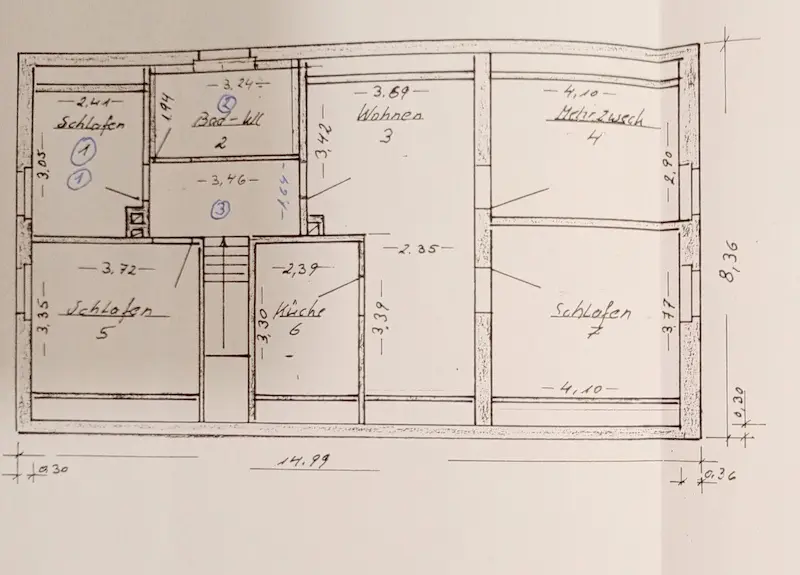 2,41
Schlafen
1
1
3,05
3,24
2
Bad-WC
2
1,94
3,69
Wohnen
3
3,42
4,10
Mehrzweck
4
2,90
3,46
3
1,64
2.35
3,72
Schlafen
5
3,35
2,39
Küche
6
3,30
3,39
Schlafen
7
3,77
4,10
8,36
0,30
14.99
0,30
0,36